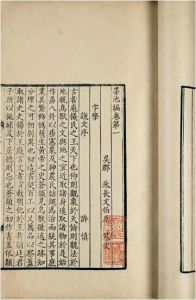 墨池編卷第一
吳郡 朱長文伯原
字學
說文序 許慎
古者庖犧氏之王天下也仰則觀象於天俯則觀法於
地視鳥獸之文與地之宜近取諸身遠取諸物於是始
作易八卦以垂憲象及神農氏結繩為治而統其事庶
業其繁飾偽萌生黃帝之史蒼頡見鳥獸蹄迒之迹知
分理之可相別異也初造書契百工以乂萬品以察蓋
取諸夬夬揚于王庭言文者宣教明化於王者朝廷君
子所以施祿及下居德則忌也蒼頡之初作書蓋依類